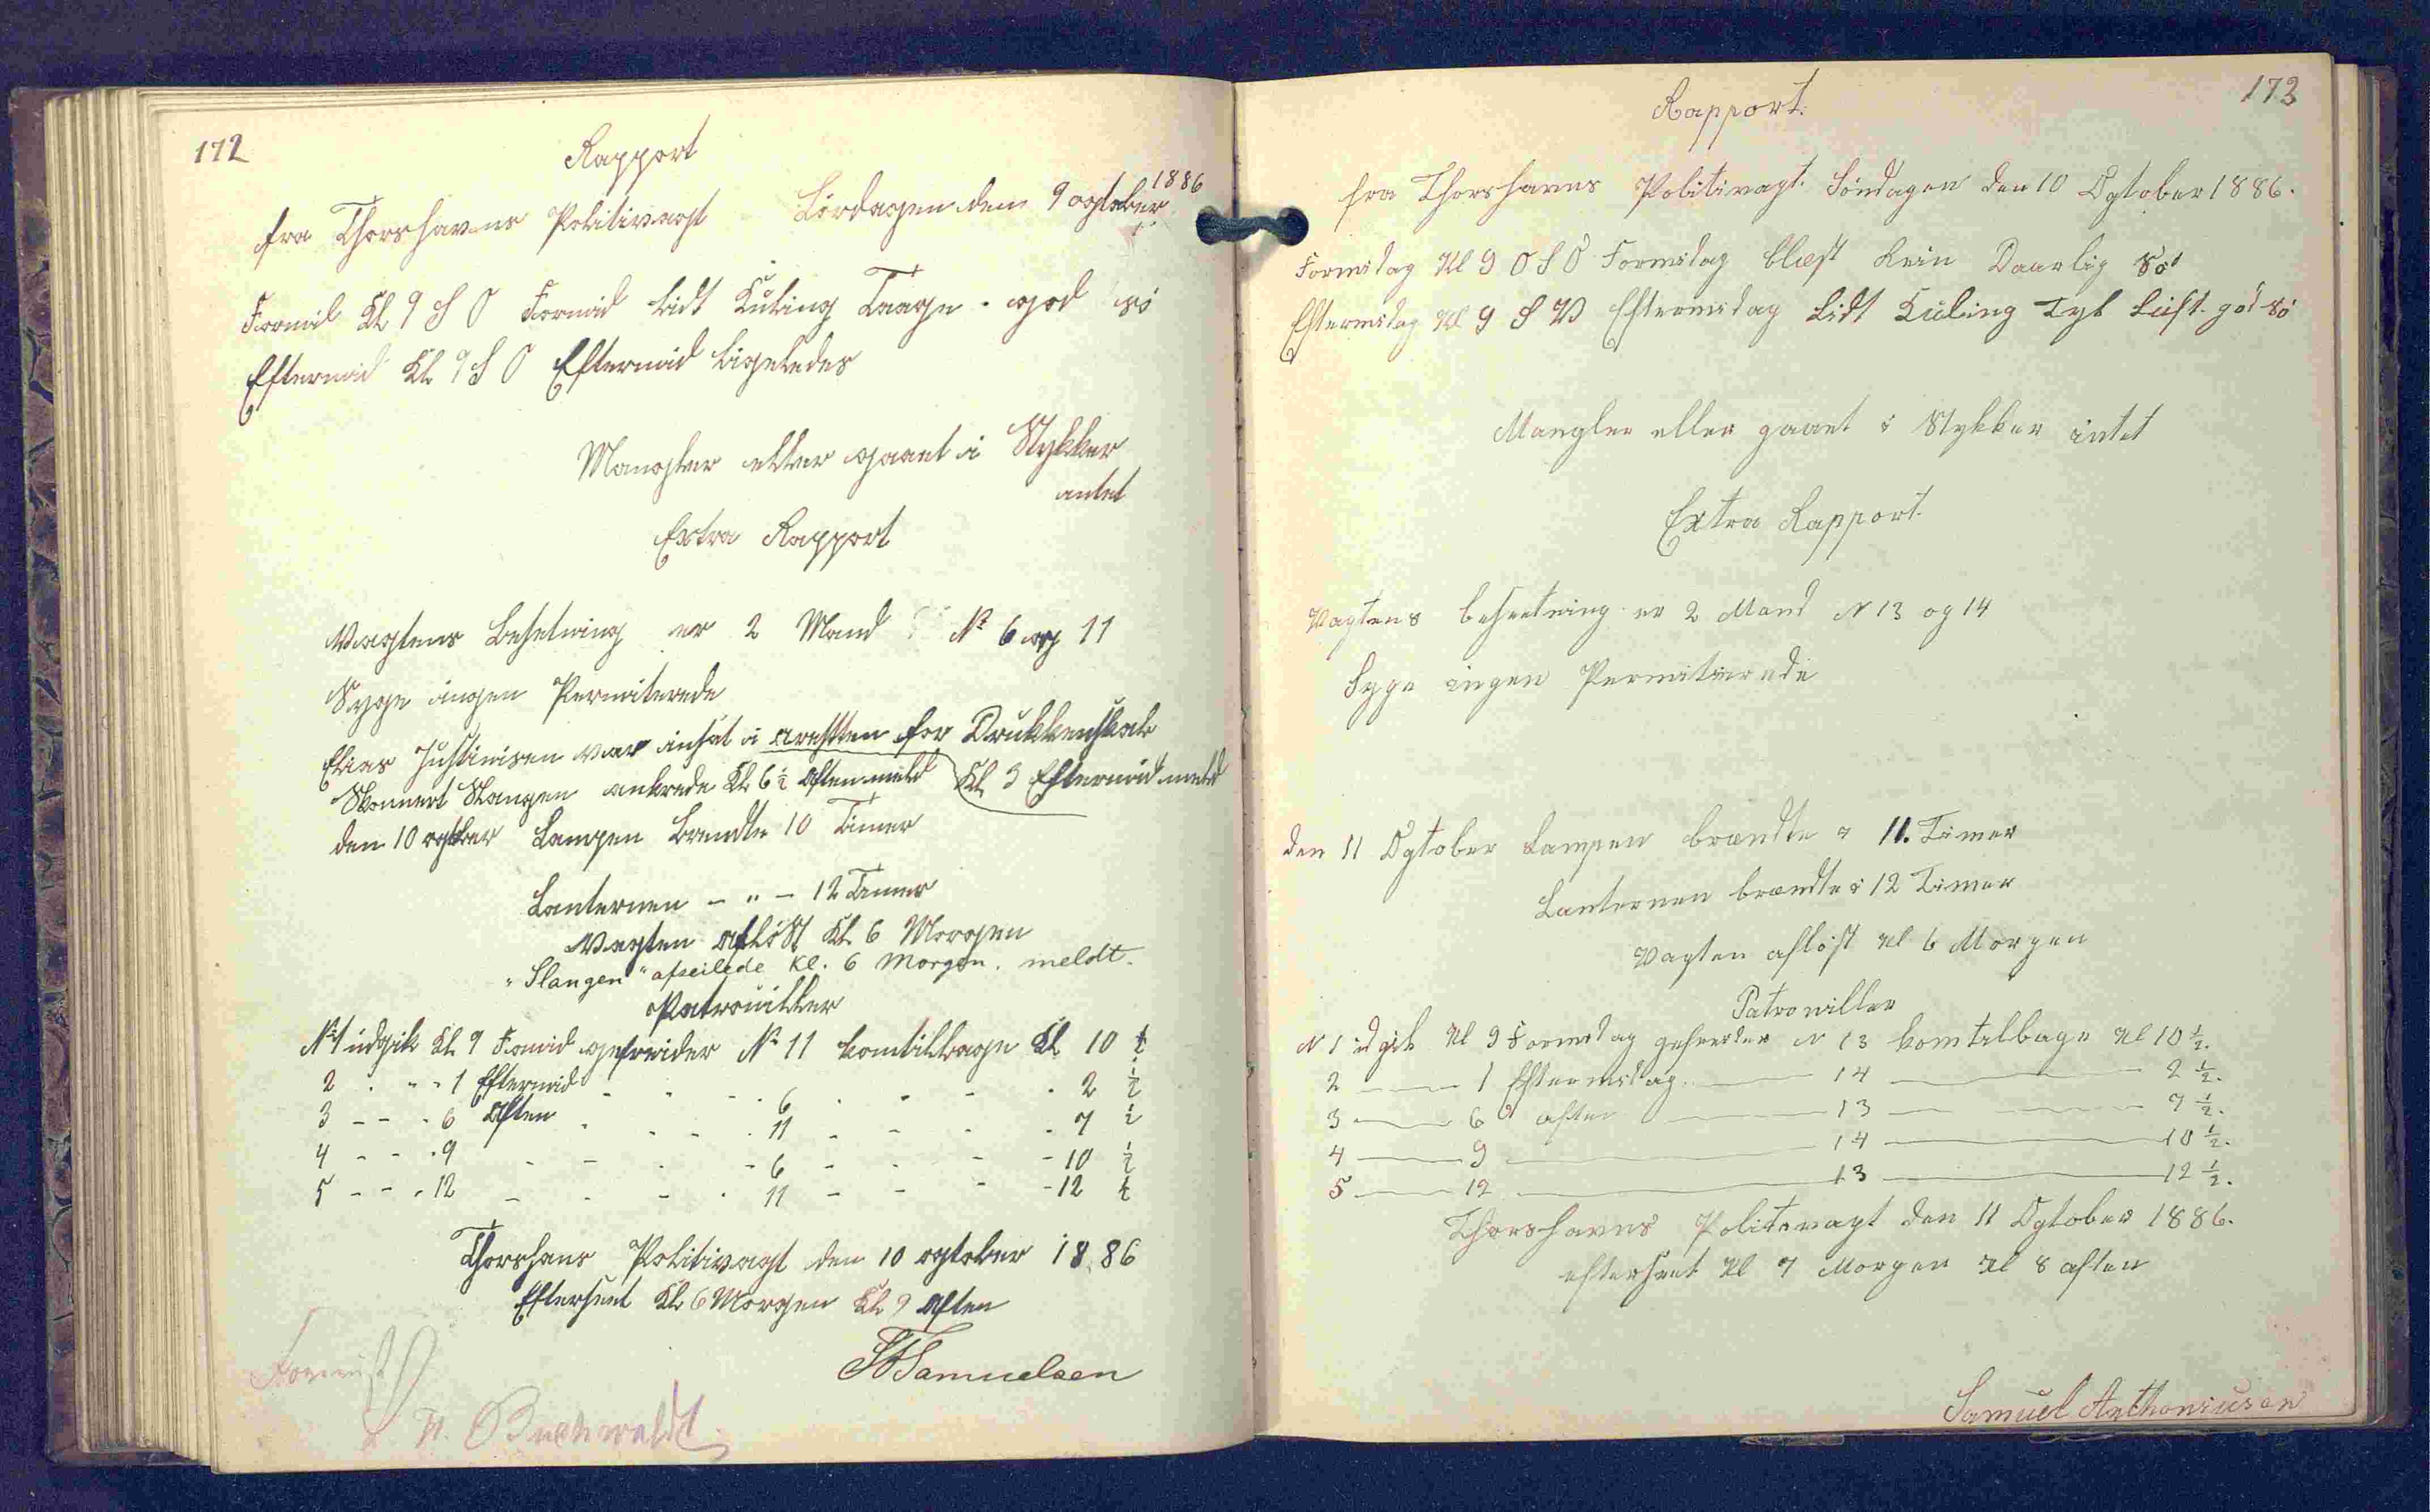 172
Rapport
fra Thorshavns Politivagt Lördagen den 9 ogtober 1886
Formid Kl 9 S O Formid lidt Kuling Taage. god sö
Eftermid Kl 9 S O Eftermid ligeledes
Mangler eller gaaet i Stykker
intet
Extra Rapport
Vagtens Besetning er 2 Mand No 6 og 11
Syge ingen Permiterede
Elias Justinisen var insat i aresten for Drukkenskab
Kl 3 Eftermid meld
Skonnert Slangen ankrede Kl 6 1/2 Aften meld
den 10 ogtber Lampen Brendte 10 Timer
Lanternen - " - 12 Timer
Vagten aflöst Kl 6 Morgen
"Slangen" afseilede Kl. 6 Morgen. meldt.
Patrouiller
No 1 udgik Kl 9 Formid gefreider No 11 komtilbage Kl 10 1/2
2 . - - 1 Eftermid - - - . 6 . - - . 2 1/2
3 - - . 6 Aften . . - . 11 - - - . 7 1/2
4 - - . 9 - - . - 6 - . - - 10 1/2
5 - - . 12 - - - . 11 - - - - 12 1/2
Thorshans Politivagt den 10 ogtober 1886
Efterseet Kl 6 Morgen Kl 9 Aften
Samuelsen
Buchwaldt
173
Rapport.
fra Thorshavns Politivagt. Söndagen den 10 Ogtober 1886.
Formidag Kl 9 O S O Formidag blæst Rein Daarlig Sö
Eftermidag Kl 9 S V Eftermidag Lidt Kuling Tyk Luft. god Sö
Mangler eller gaaet i Stykker intet
Extra Rapport.
Vagtens besætning er 2 Mand N 13 og 14
Syge ingen Permitterede
den 11 Ogtober Lampen brændte i 11. Timer
Lanternen brændte i 12 Timer
Vagten aflöst Kl 6 Morgen
Patrouiller
N 1 udgik Kl 9 Formidag gefreeder N 13 komtilbage Kl 10 1/2.
2 —— 1 Eftermidag. —— 14 —— 2 1/2.
3 —— 6 aften —— 13 —— 7 1/2.
4 —— 9 —— 14 —— 10 1/2.
5 —— 12 —— 13 —— 12 1/2.
Thorshavns Politivagt den 11 Ogtober 1886.
efterseet Kl 7 Morgen Kl 8 aften
Samuel Anthoniusen